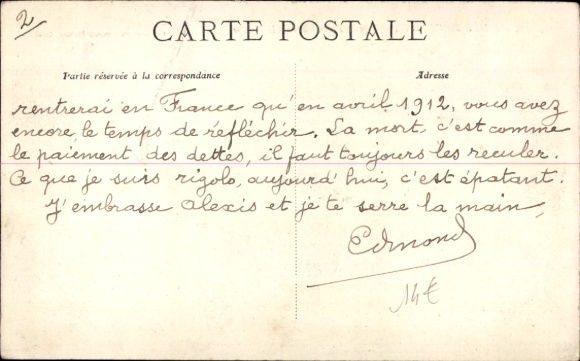 2
CARTE POSTALE
Partie réservée à la correspondance
Adresse
rentrerai en France qu'en avril 1912, vous avez
encore le temps de réfléchir. La mort, c'est comme
le paiement des dettes, il faut toujours les reculer.
Ce que je suis rigolo, aujourd'hui, c'est épatant.
J'embrasse Alexis et je te serre la main,
Edmond
14€